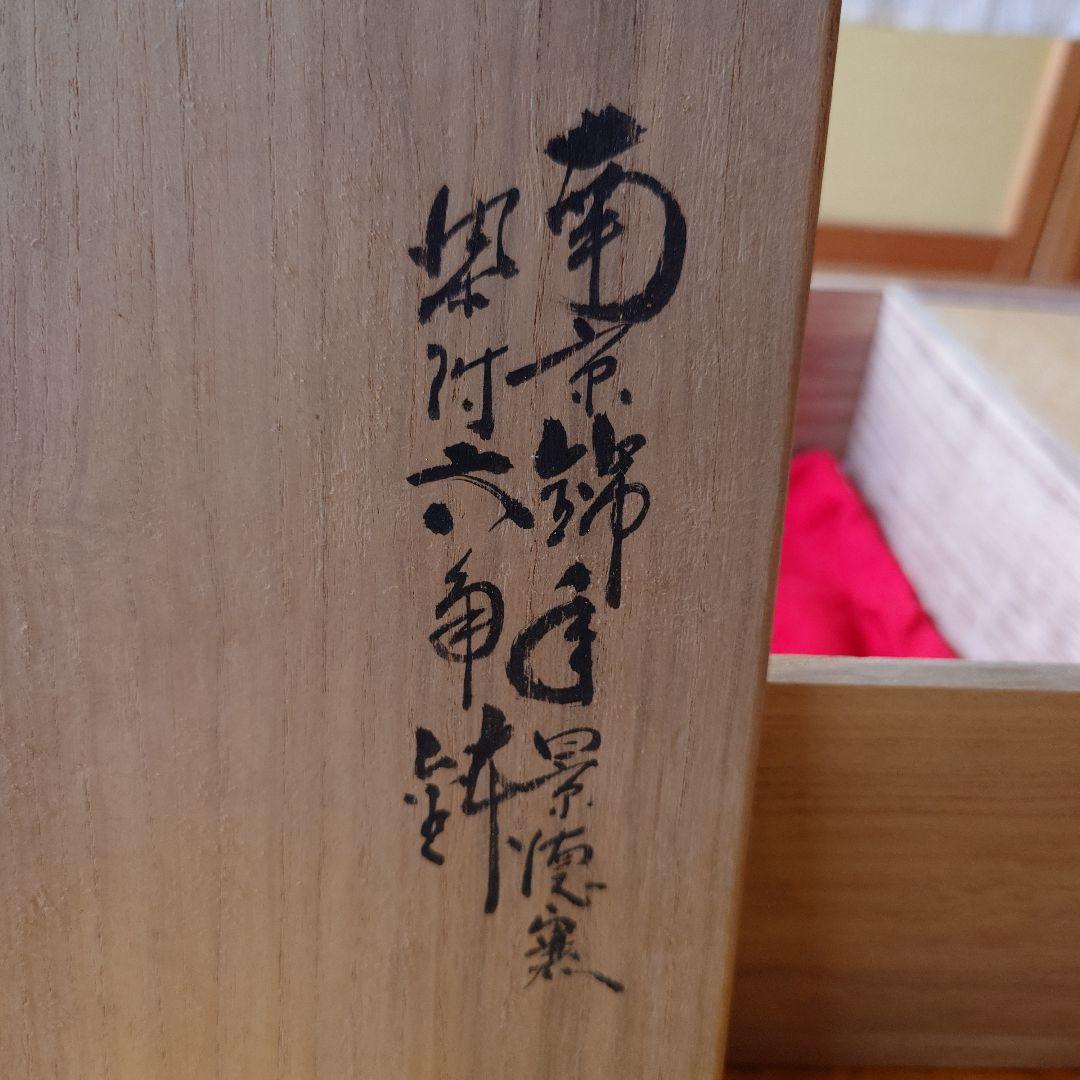 南京錦手景徳窯
染附六角鉢